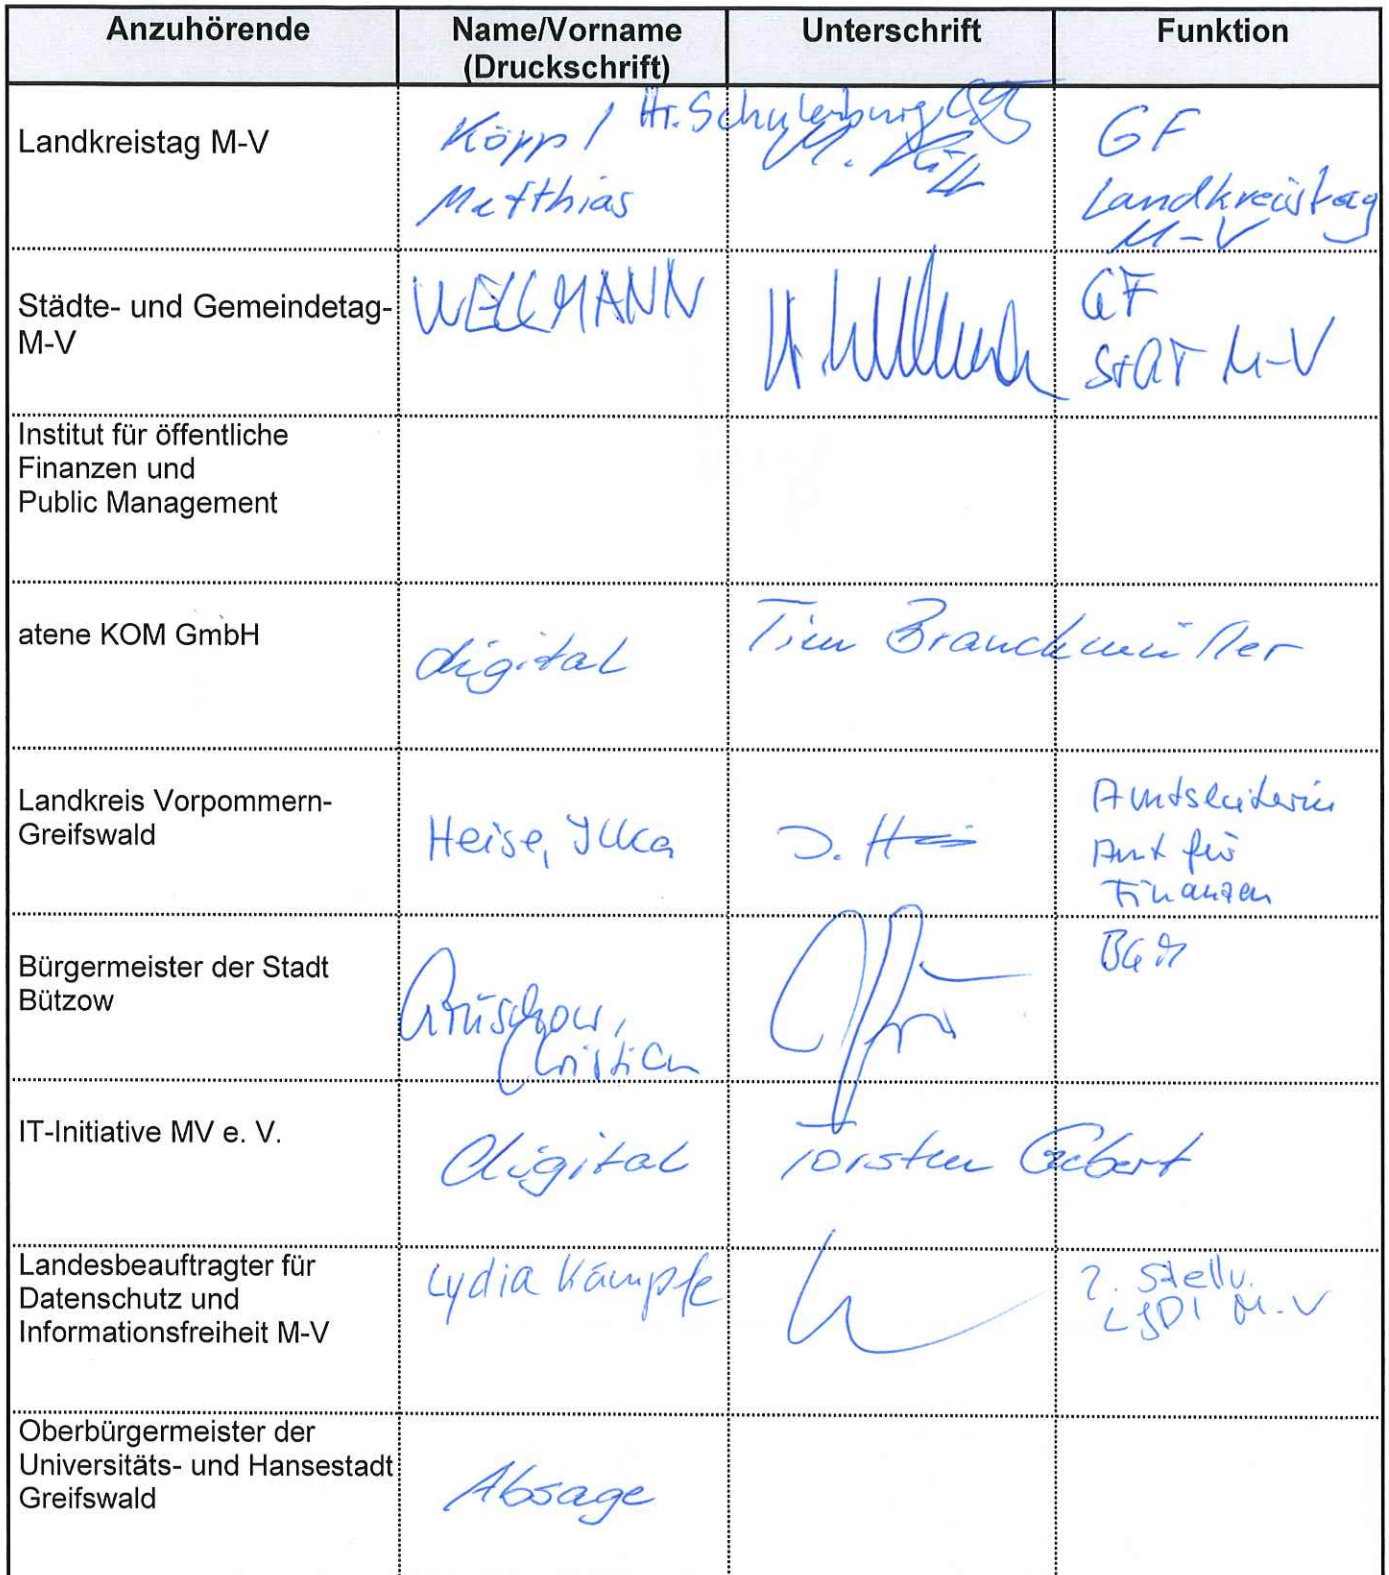 Anzuhörende
Name/Vorname
(Druckschrift)
Unterschrift
Funktion
Landkreistag M-V
Köpp /
Matthias
Hr. Schulenburg
GF
Landkreistag
M-V
Städte- und Gemeindetag-
M-V
WELLMANN
GF
StGT M-V
Institut für öffentliche
Finanzen und
Public Management
atene KOM GmbH
digital
Tim Brauckmüller
Landkreis Vorpommern-
Greifswald
Heise, Ilka
I. H
Amtsleiterin
Amt für
Finanzen
Bürgermeister der Stadt
Bützow
Grüschow,
Christian
BGM
IT-Initiative MV e. V.
digital
Torsten Gebert
Landesbeauftragter für
Datenschutz und
Informationsfreiheit M-V
Lydia Kämpfe
2. Stellv.
LfDI M-V
Oberbürgermeister der
Universitäts- und Hansestadt
Greifswald
Absage